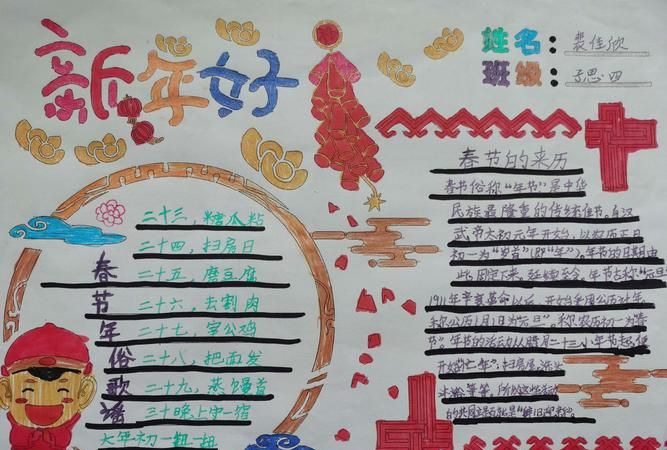 新年好
姓名：裴佳欣
班级：子思·四
春节年俗歌谣
二十三，糖瓜粘
二十四，扫房日
二十五，磨豆腐
二十六，去割肉
二十七，宰公鸡
二十八，把面发
二十九，蒸馒首
三十晚上守一宿
大年初一扭一扭
春节的来历
春节俗称"年节"是中华
民族最隆重的传统佳节。自汉
武帝太初元年开始，以农历正月
初一为"岁首"（即"年"）。年节的日期由
此固定下来，延续至今。年节古称"元旦"
1911年辛亥革命以后，开始采用公历计年
称公历1月1日为"元旦"。称农历初一为"春
节"。年节的活动从腊月二十三小年节起，便
开始"忙年"：扫房屋、洗头
沐浴等等。所以这些活动
的共同